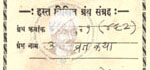 हस्त लिखित ग्रंथ संग्रह
ग्रंथ क्रमांक (४६२)
ग्रंथ नाम व्रत कथा